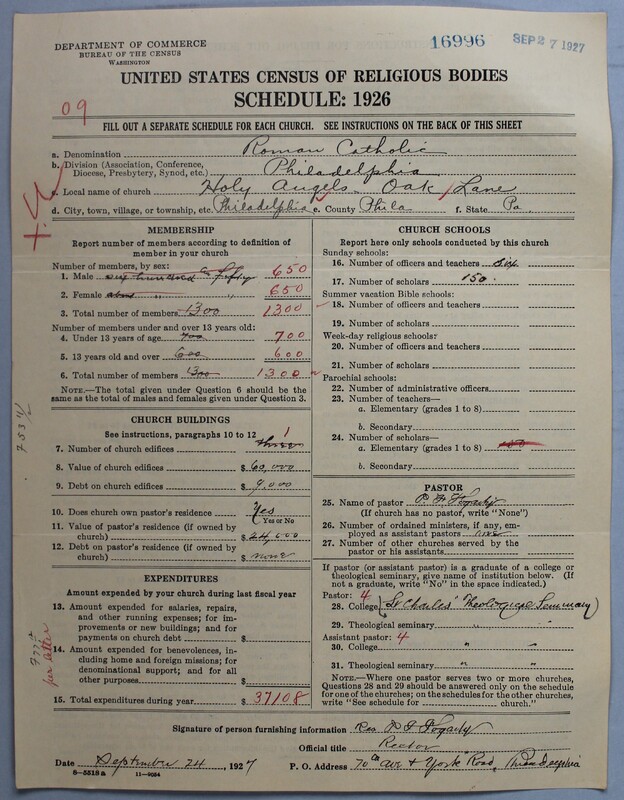 DEPARTMENT OF COMMERCE
BUREAU OF THE CENSUS
WASHINGTON
16996
SEP 27 1927
UNITED STATES CENSUS OF RELIGIOUS BODIES
SCHEDULE: 1926
09
FILL OUT A SEPARATE SCHEDULE FOR EACH CHURCH. SEE INSTRUCTIONS ON THE BACK OF THIS SHEET
a. Denomination Roman Catholic
b. Division (Association, Conference, Diocese, Presbytery, Synod, etc.) Philadelphia
c. Local name of church Holy Angels Oak Lane
d. City, town, village, or township, etc. Philadelphia e. County Phila f. State Pa.
MEMBERSHIP
Report number of members according to definition of
member in your church
Number of members, by sex:
1. Male six hundred & fifty 650
2. Female " " 650
3. Total number of members 1300 1300
Number of members under and over 13 years old:
4. Under 13 years of age 700 700
5. 13 years old and over 600 600
6. Total number of members 1300 1300
NOTE.—The total given under Question 6 should be the
same as the total of males and females given under Question 3.
CHURCH BUILDINGS
See instructions, paragraphs 10 to 12
7. Number of church edifices three 1
8. Value of church edifices $ 60,000
9. Debt on church edifices $ 9,000
10. Does church own pastor's residence Yes
Yes or No
11. Value of pastor's residence (if owned by
church) $ 24,000
12. Debt on pastor's residence (if owned by
church) $ none
EXPENDITURES
Amount expended by your church during last fiscal year
13. Amount expended for salaries, repairs,
and other running expenses; for im-
provements or new buildings; and for
payments on church debt $
14. Amount expended for benevolences, in-
cluding home and foreign missions; for
denominational support; and for all
other purposes $
15. Total expenditures during year $ 37108
per letter
CHURCH SCHOOLS
Report here only schools conducted by this church
Sunday schools:
16. Number of officers and teachers six
17. Number of scholars 150.
Summer vacation Bible schools:
18. Number of officers and teachers
19. Number of scholars
Week-day religious schools:
20. Number of officers and teachers
21. Number of scholars
Parochial schools:
22. Number of administrative officers
23. Number of teachers—
a. Elementary (grades 1 to 8)
b. Secondary
24. Number of scholars—
a. Elementary (grades 1 to 8) 150
b. Secondary
PASTOR
25. Name of pastor P. F. Fogarty
(If church has no pastor, write "None")
26. Number of ordained ministers, if any, em-
ployed as assistant pastors
27. Number of other churches served by the
pastor or his assistants
If pastor (or assistant pastor) is a graduate of a college or
theological seminary, give name of institution below. (If
not a graduate, write "No" in the space indicated.)
Pastor: 4
28. College (St Charles' Theologique Seminary)
29. Theological seminary
Assistant pastor: 4
30. College " "
31. Theological seminary " "
NOTE.—Where one pastor serves two or more churches,
Questions 28 and 29 should be answered only on the schedule
for one of the churches; on the schedules for the other churches,
write "See schedule for church."
Signature of person furnishing information Rev P F Fogarty
Official title Rector
Date September 24, 1927 P. O. Address 70th Ave & York Road, Philadelphia
8-5518a 11-9034